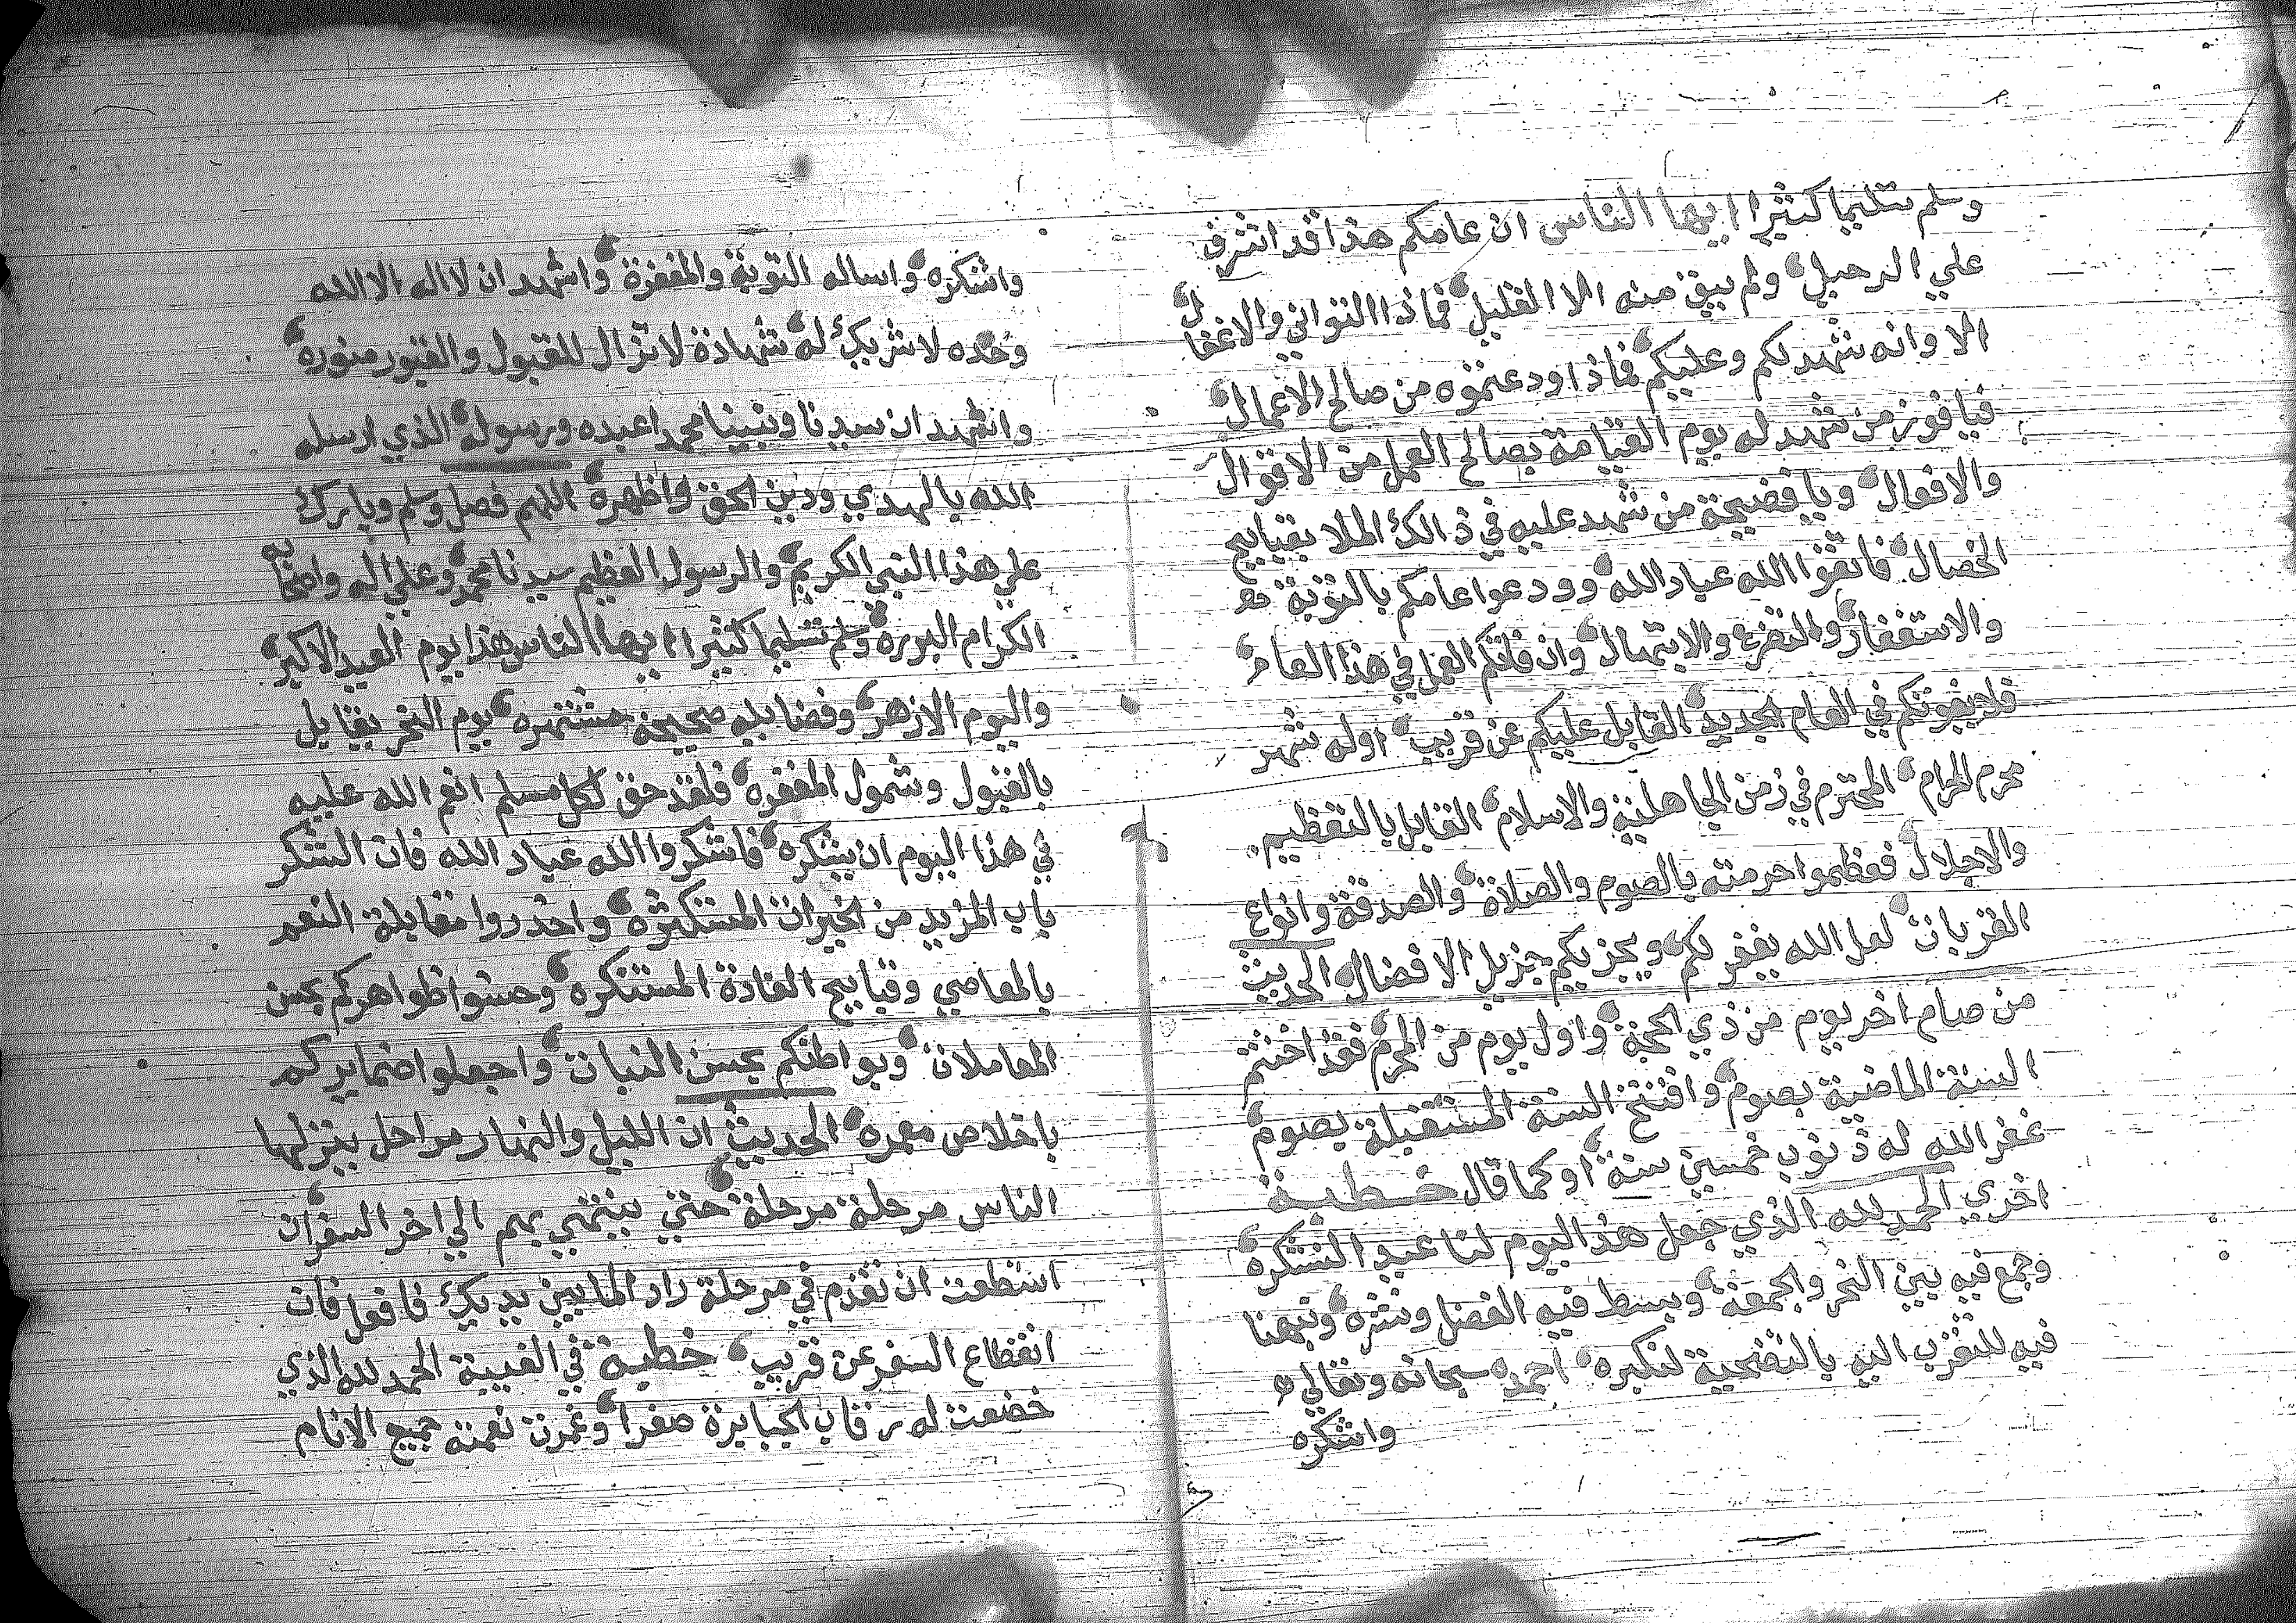 وسلم تسليما كثيرا ايها الناس ان عامكم هذا قد اشرف
علي الرحيل ولم يبق منه الا القليل فماذا التواني والاغفال
الا وانه شهد لكم وعليكم فماذا ودعتموه من صالح الاعمال
فيا فوز من شهد له يوم القيامة بصالح العمل من الاقوال
والافعال ويا فضيحة من شهد عليه في ذالك الملا بقبايح
الخصال فاتقوا الله عباد الله وودعوا عامكم بالتوبة
والاستغفار والتضرع والابتهال وان فاتكم العمل في هذا العام
فلا يفوتكم في العام الجديد القابل عليكم عن قريب اوله شهر
محرم الحرام المحترم في زمن الجاهلية والاسلام القابل بالتعظيم
والاجلال فعظموا حرمته بالصوم والصلاة والصدقة وانواع
القربات لعل الله يغفر لكم ويجزيكم جزيل الافضال الحديث
من صام اخر يوم من ذي الحجة واول يوم من المحرم فقد اختتم
السنة الماضية بصوم وافتتح السنة المستقبلة بصوم
غفر الله له ذنوب خمسين سنة او كما قال خطبة
اخري الحمد لله الذي جعل هذا اليوم لنا عيد النشكره
وجمع فيه بين النحر والجمعة وبسط فيه الفضل ونشره ونبهنا
فيه للتقرب اليه بالتضحية لنكبره احمده سبحانه وتعالي
واشكره
واشكره واساله التوبة والمغفرة واشهد ان لا اله الا الله
وحده لا شريك له شهادة لا تزال للقبول والقبور منوره
واشهد ان سيدنا ونبينا محمدا عبده ورسوله الذي ارسله
الله بالهدي ودين الحق واظهره اللهم فصل وسلم وبارك
علي هذا النبي الكريم والرسول العظيم سيدنا محمد وعلي اله واصحابه
الكرام البرره وسلم تسليما كثيرا ايها الناس هذا يوم العيد الاكبر
واليوم الازهر وفضايله صحيحة مشتهره يوم النحر يقابل
بالقبول وشمول المغفره فلقد حق لكل مسلم انعم الله عليه
في هذا اليوم ان يشكره فاشكروا الله عباد الله فان الشكر
باب المزيد من الخيرات المستكثره واحذروا مقابلة النعم
بالمعاصي وقبايح العادة المستنكره وحسنوا ظواهركم بحسن
المعاملات وبواطنكم بحسن النيات واجعلوا ضمايركم
باخلاص معمره الحديث ان الليل والنهار مراحل ينزلها
الناس مرحلة مرحلة حتي ينتهي بهم الي اخر السفر ان
استطعت ان تقدم في مرحلة زاد الما بين يديك فافعل فان
انقطاع السفر عن قريب خطبة في الغيبة الحمد لله الذي
خضعت له رقاب الجبابرة صغرا وغمرت نعمته جميع الانام